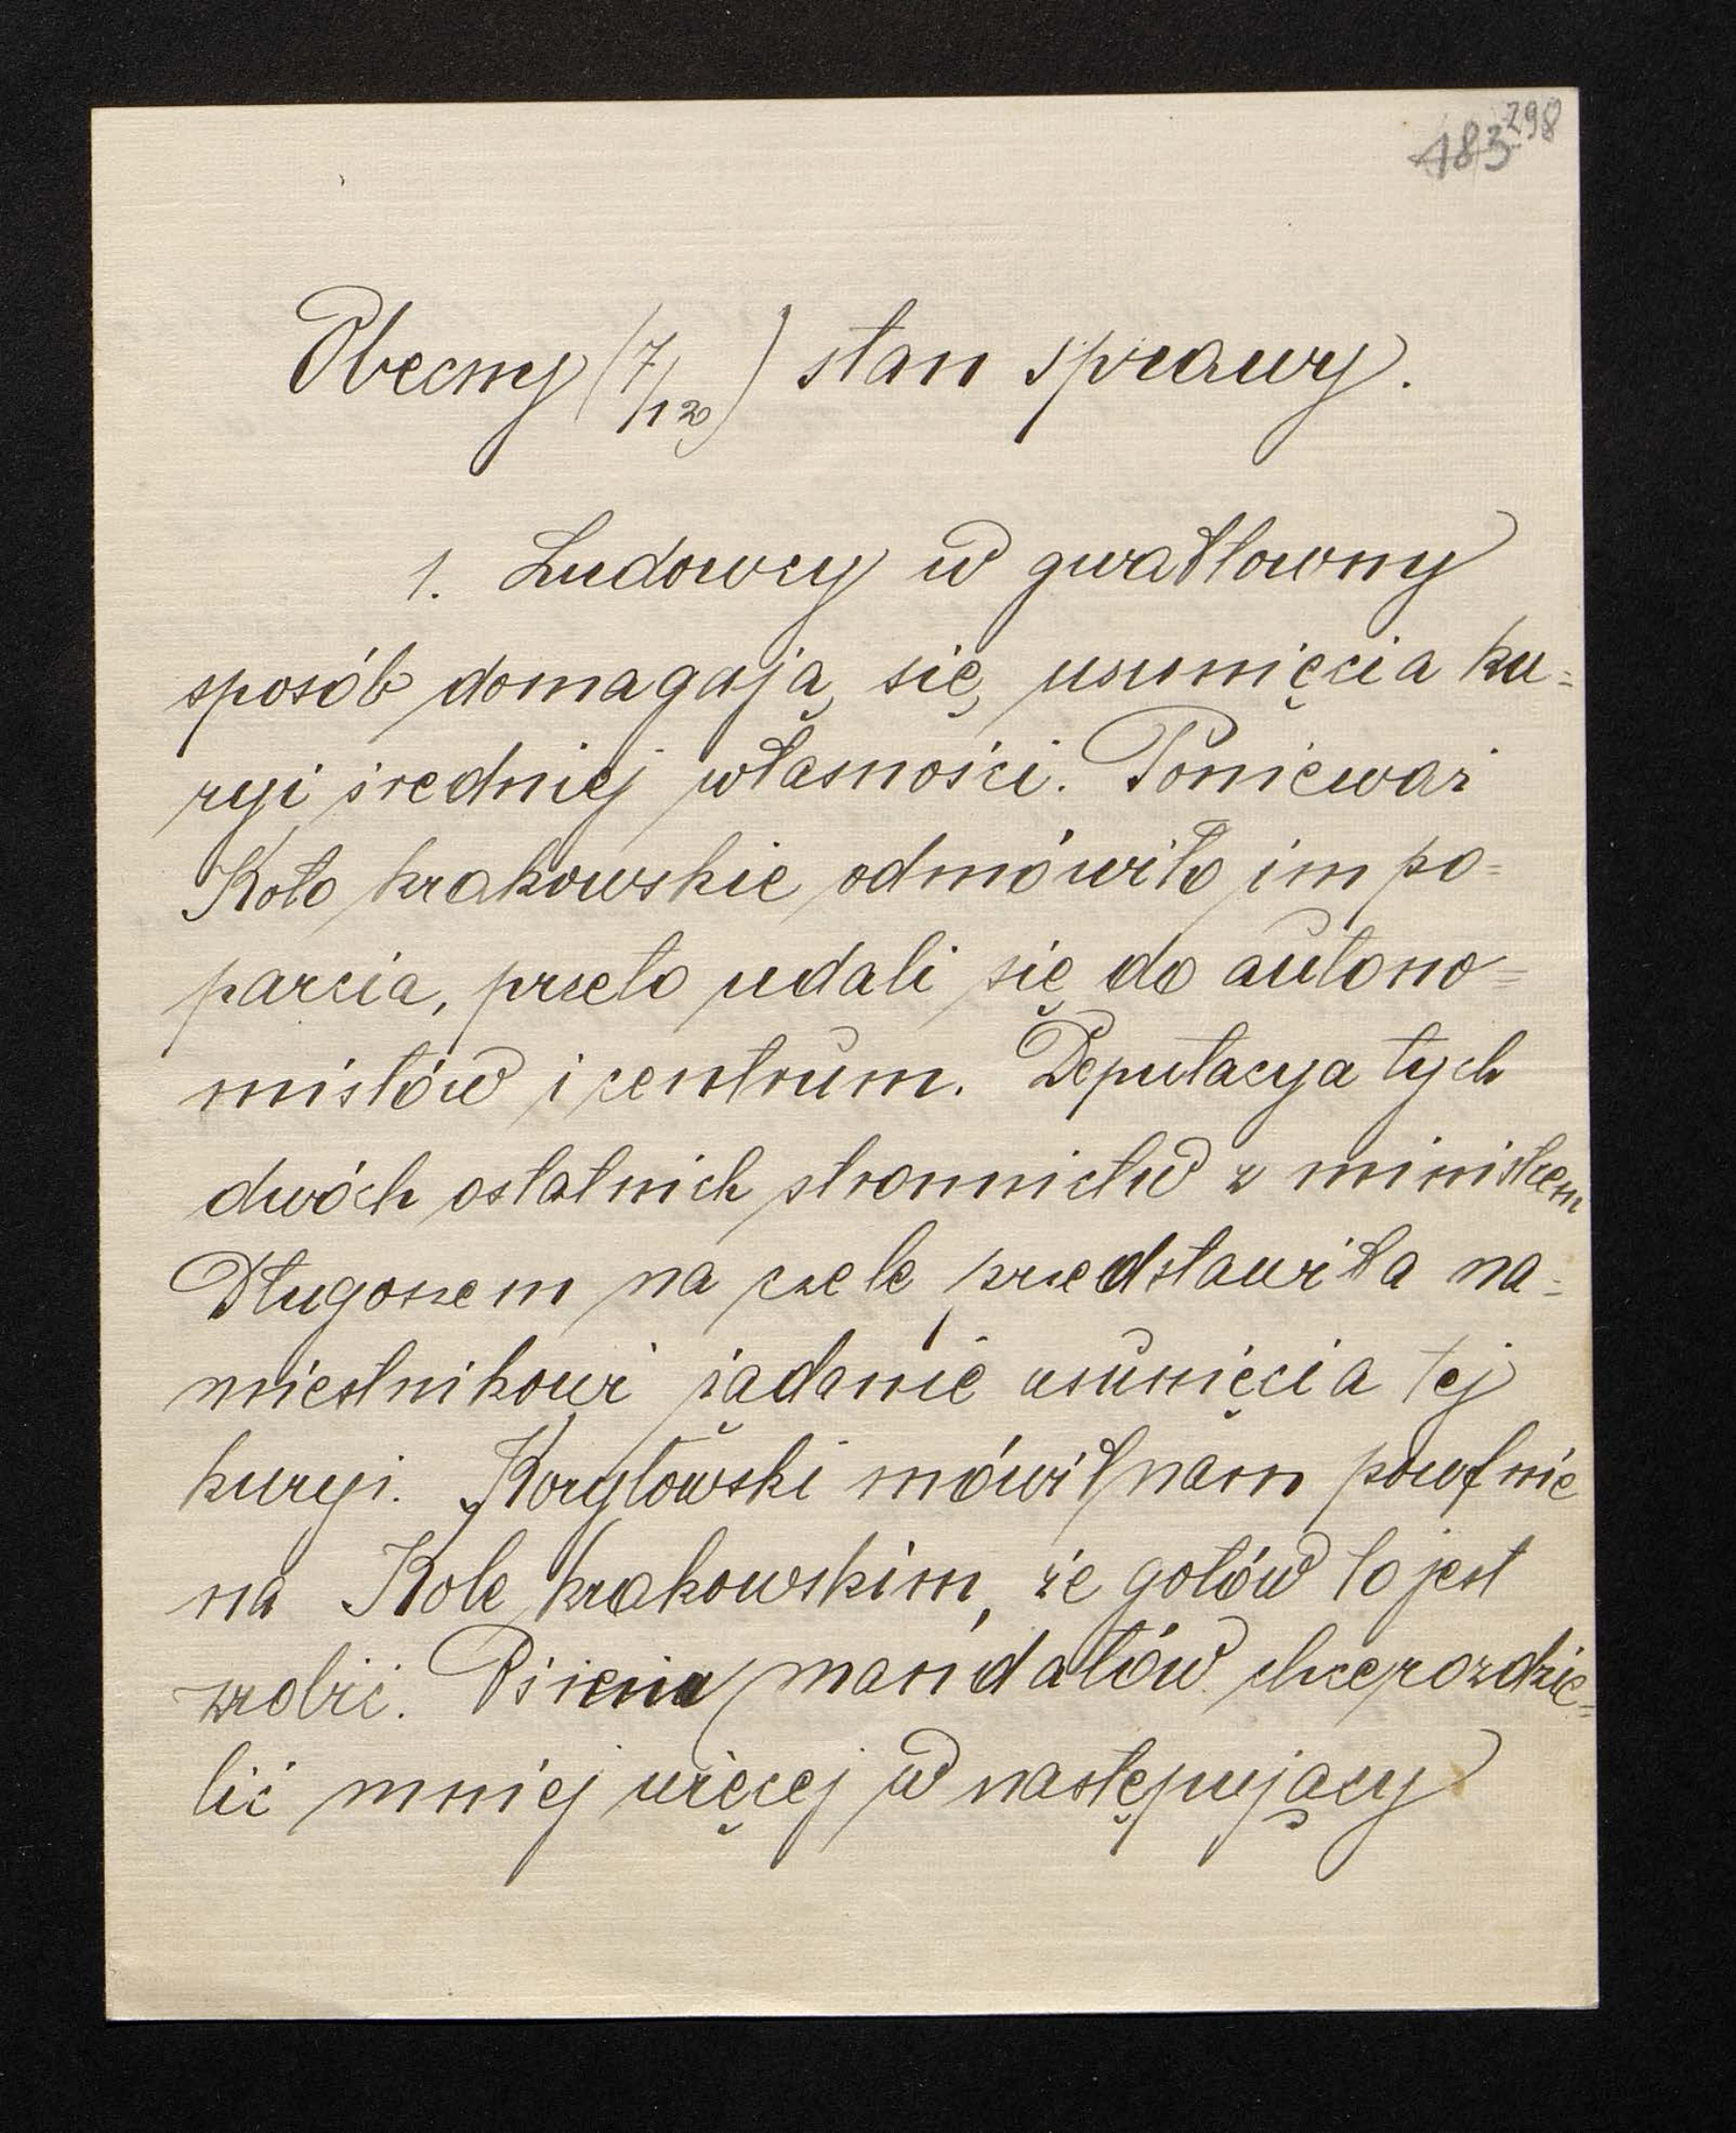 298
183
Obecny (7/12) stan sprawy.
1. Ludowcy w gwałtowny
sposób domagają się usunięcia ku=
ryi średniej własności. Ponieważ
Koło krakowskie odmówiło im po=
parcia, przeto udali się do autono=
mistów i centrum. Deputacya tych
dwóch ostatnich stronnictw z ministrem
Długoszem na czele przedstawiła na=
miestnikowi żądanie usunięcia tej
kuryi. Korytowski mówił nam poufnie
na Kole krakowskim, że gotów to jest
zrobić. mandatów chce rozdzie=
lić mniej więcej w następujący